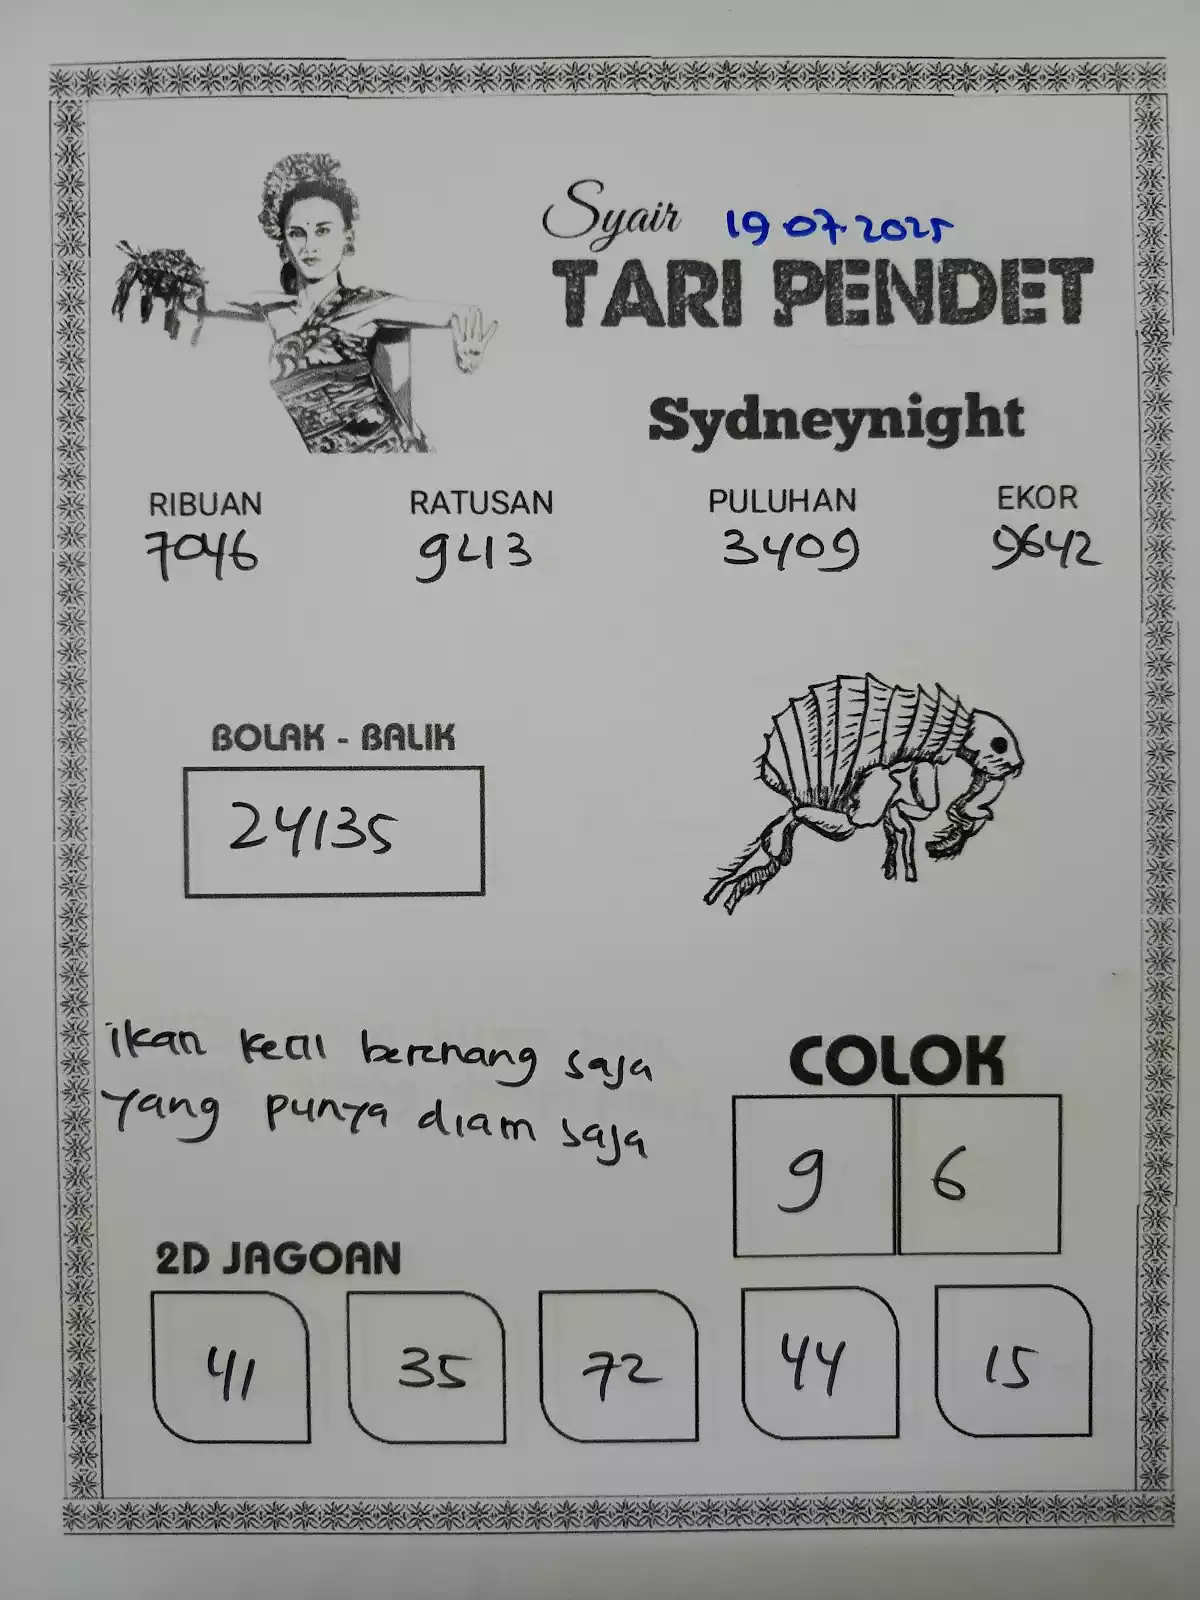 Syair 19.07.2025
TARI PENDET
Sydneynight
RIBUAN RATUSAN PULUHAN EKOR
7046 9413 3409 9642
BOLAK - BALIK
24135
ikan kecil berenang saja
yang punya diam saja
COLOK
9 6
2D JAGOAN
41 35 72 44 15